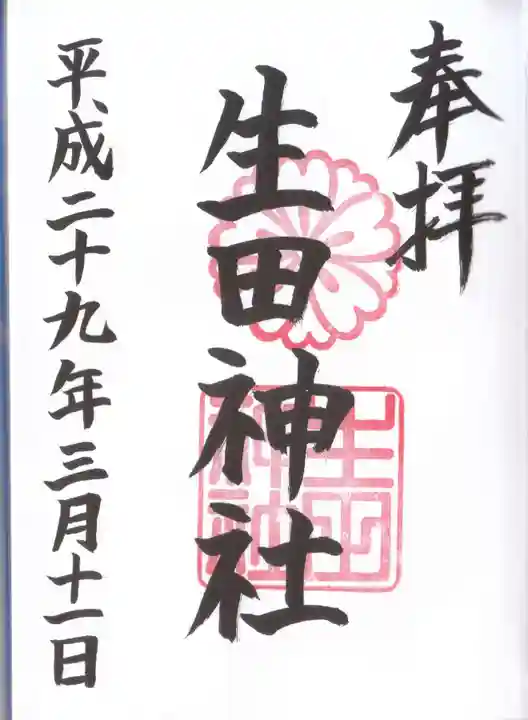 奉拝
生田神社
生田神社
平成二十九年三月十一日